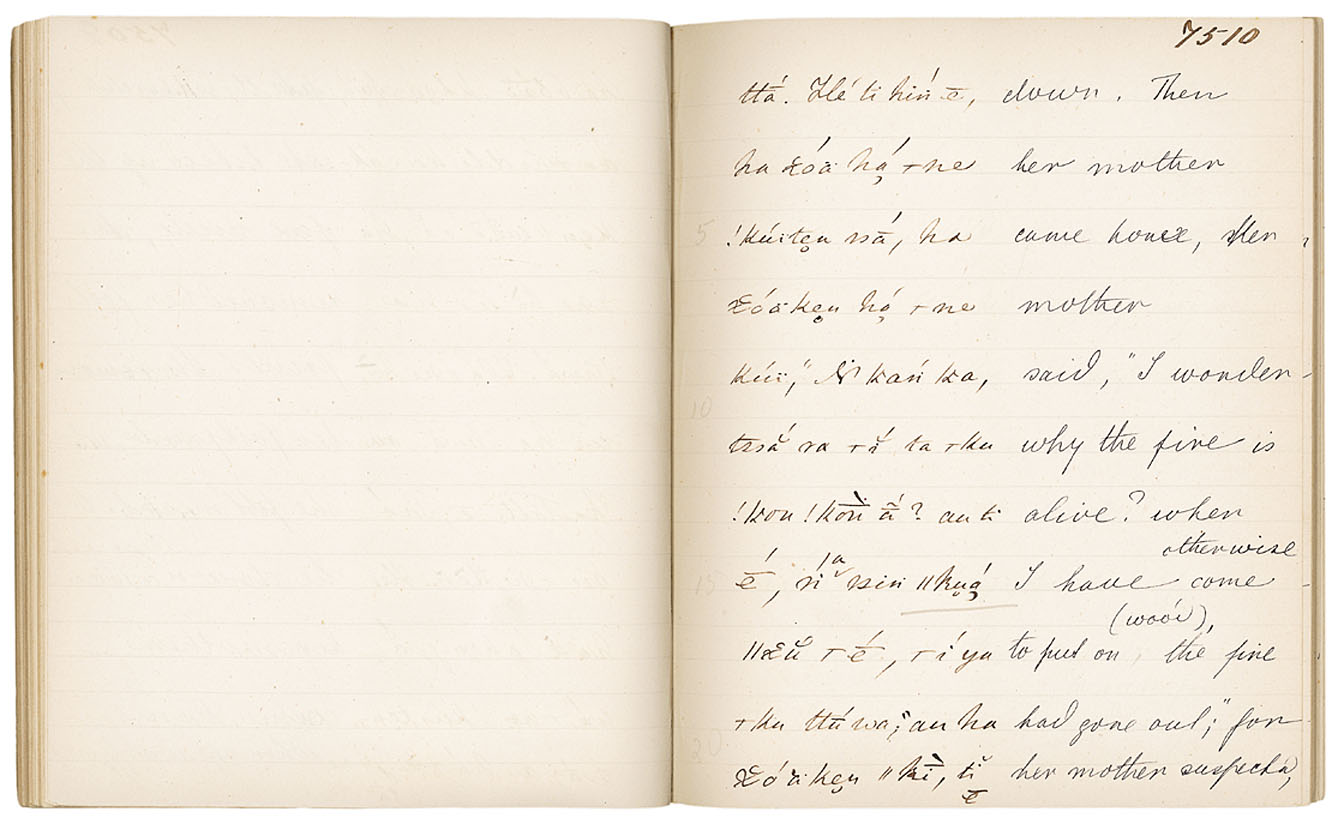 7510
ttā́. Hé ti hiń ē, down. Then
ha χóä há̤ ⊤ne her mother
5 !kúïtẹn ssā́, ha came home, her
χóäkẹn há̤ ⊤ne mother
kúï, " Ń kaṅ ka, said, "I wonder
10
tssắ ra ⊤ĭ́ ta ⊤ku why the fire is
!kou !kōṅ ā́? au ti alive? when
otherwise
15 ḗ, ṅ a ssiṅ ǁkṳá̤ I have come
(wood),
ǁχĕ́ ⊤ ḗ, ⊤í ya to put on the fire
⊤ku ttú wa;" au ha had gone out;" for
20
χóä kẹn ǁkī̀, tĭ ē her mother suspected,